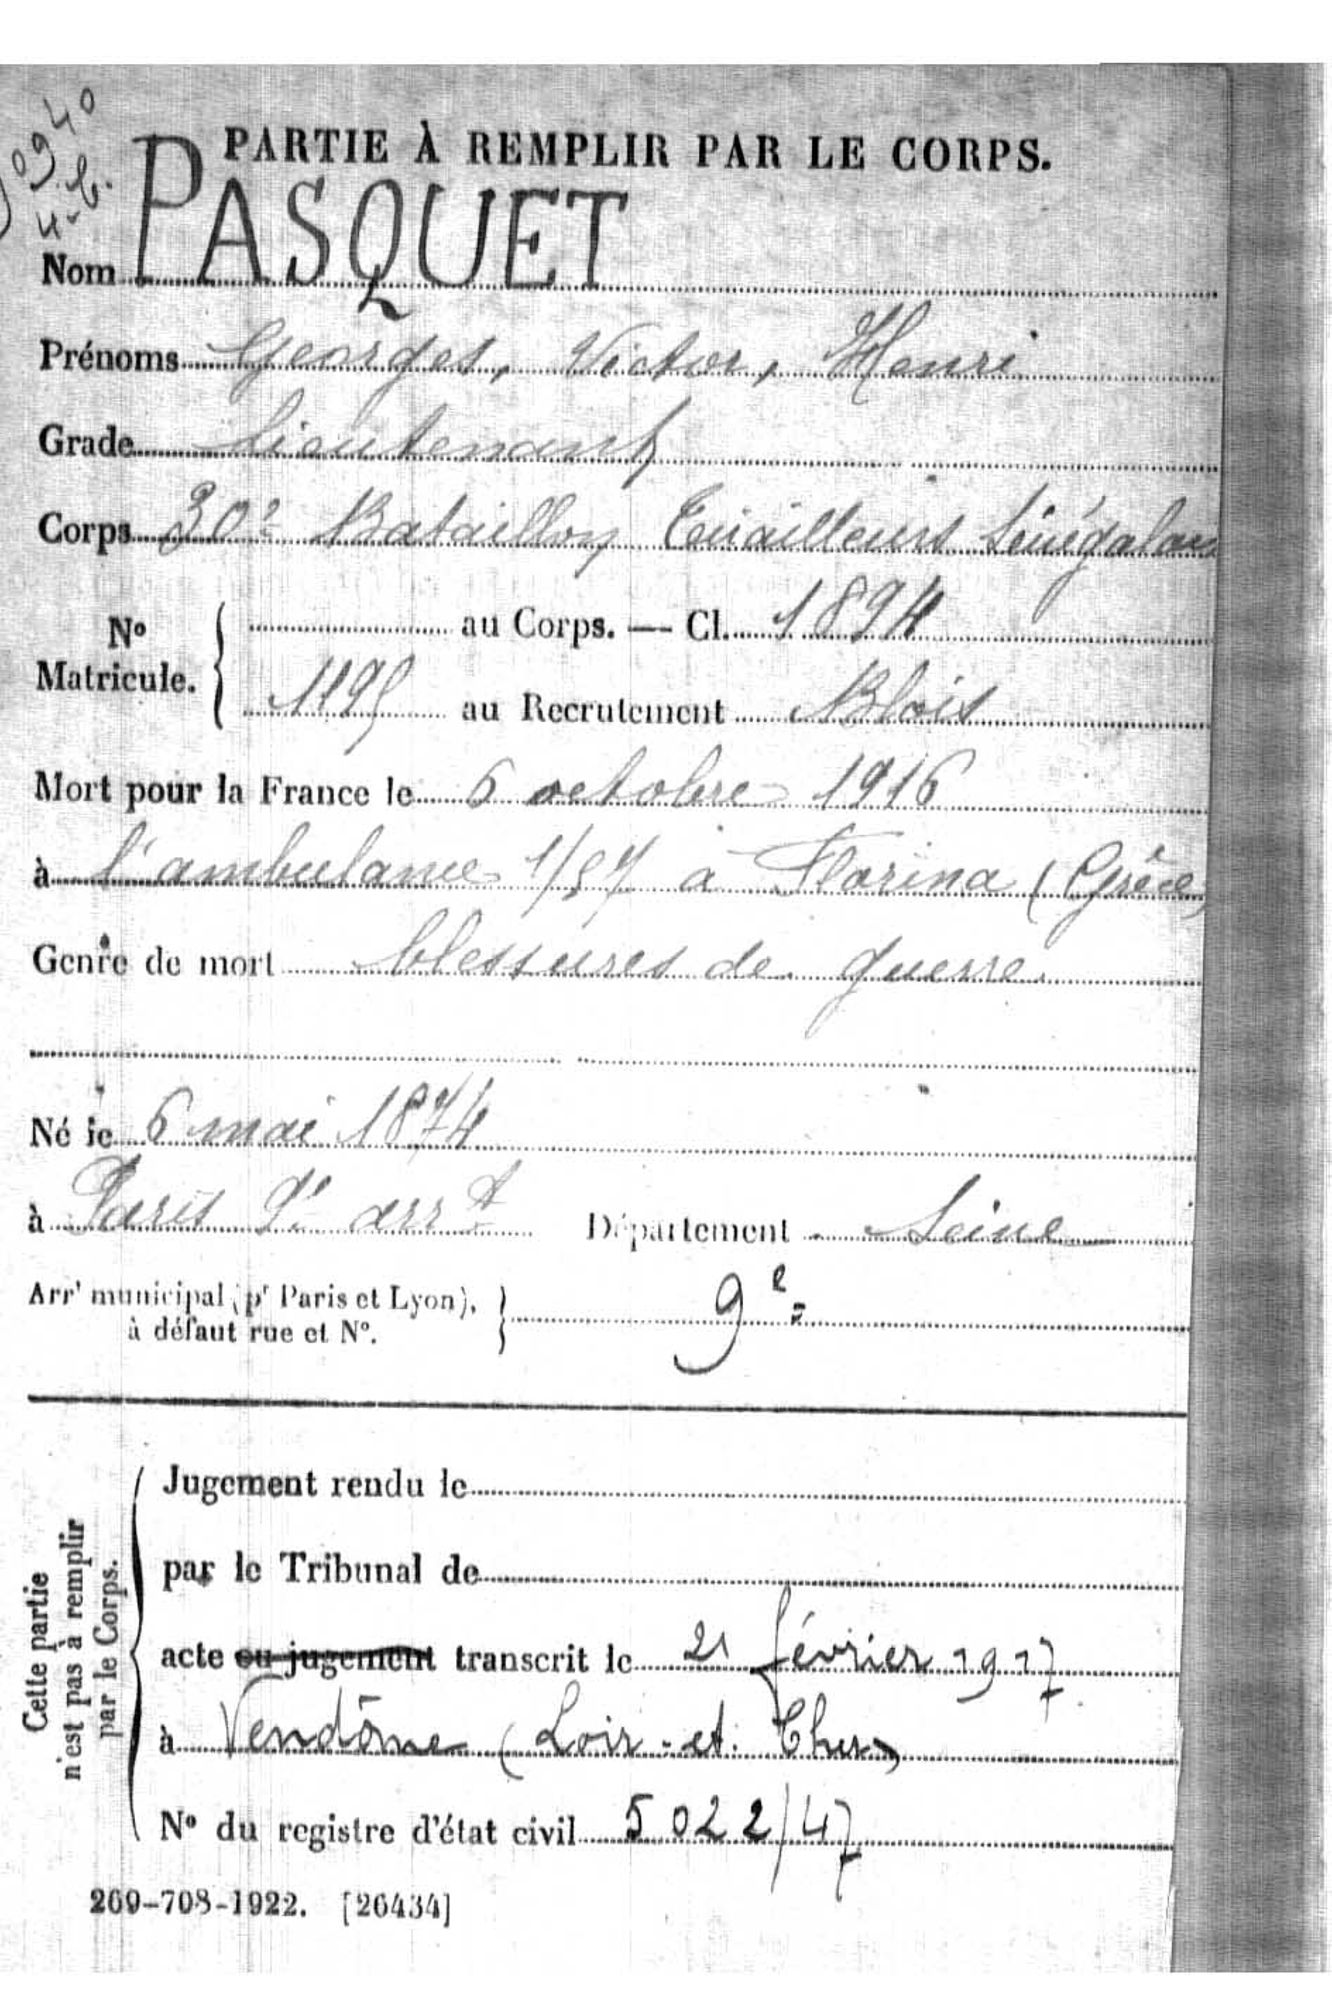 0940
4.b.
PARTIE À REMPLIR PAR LE CORPS.
Nom PASQUET
Prénoms Georges, Victor, Henri
Grade Lieutenant
Corps 30e Bataillon Tirailleurs Sénégalais
No Matricule. { au Corps. — Cl. 1894
1195 au Recrutement Blois
Mort pour la France le 6 octobre 1916
à l'ambulance 1/57 à Florina (Grèce)
Genre de mort blessures de guerre.
Né le 6 mai 1874
à Paris 9e arrt Département Seine
Arrt municipal (pr Paris et Lyon), à défaut rue et No. } 9e
Cette partie n'est pas à remplir par le Corps.
Jugement rendu le
par le Tribunal de
acte ou jugement transcrit le 21 février 1917
à Vendôme (Loir-et-Cher)
No du registre d'état civil 5022/47
269-708-1922. [26434]